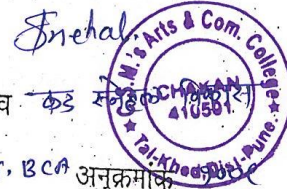 Snehal
M.'s Arts & Com. College
CHAKAN
410501
Tal.-Khed, Dist.-Pune.
व कड स्नेहल विकास
BCA अनुक्रमांक